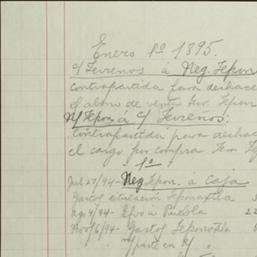 Enero 1º 1895.
c/ Terrenos á Neg. Tepon
contrapartida para deshacer
el abono de venta Ter. Tepon
N/ Tepon á c/ Terrenos:
contrapartida para deshac
el cargo por compra Terr
1º
Jul 27/94 - Neg Tepon. á Caja
Gastos
Ag 4/94 - á Puebla
Nov 6/94 - Gastos